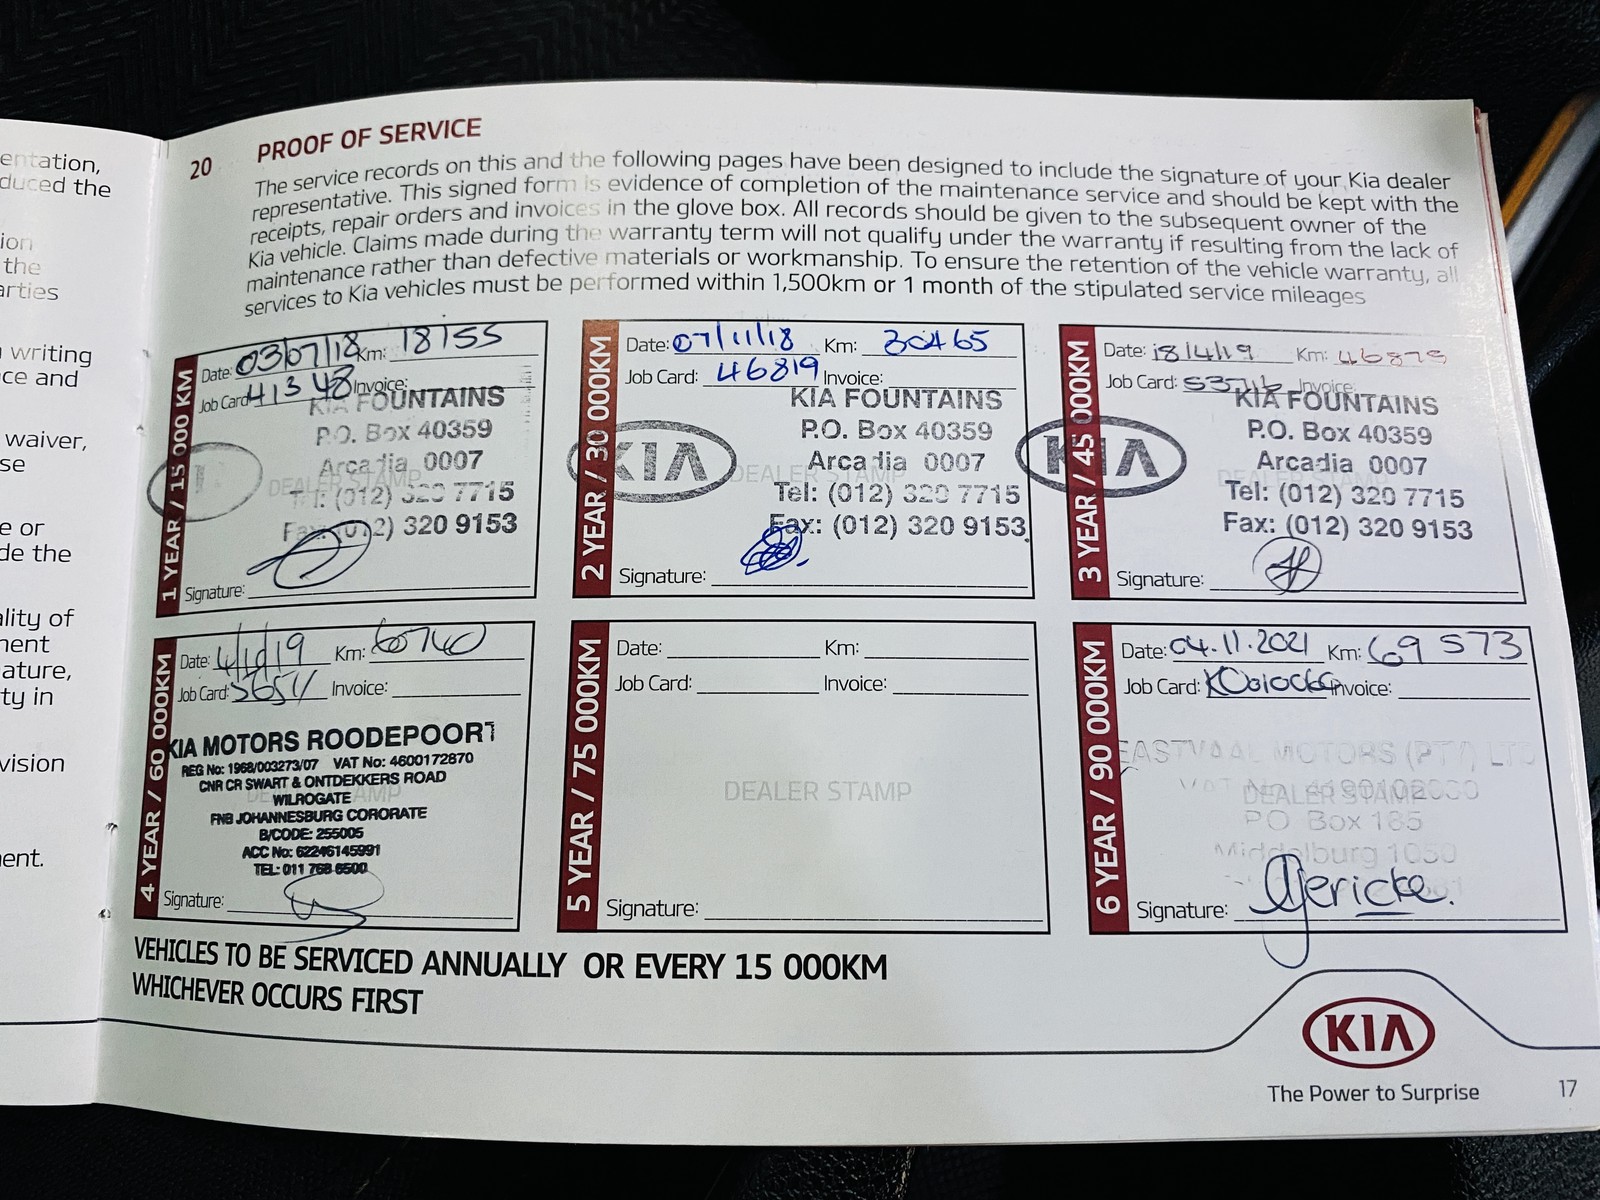 entation,
duced the
ion
the
arties
writing
ce and
waiver,
se
e or
de the
ality of
nent
ature,
ty in
vision
ent.
20 PROOF OF SERVICE
The service records on this and the following pages have been designed to include the signature of your Kia dealer
representative. This signed form is evidence of completion of the maintenance service and should be kept with the
receipts, repair orders and invoices in the glove box. All records should be given to the subsequent owner of the
Kia vehicle. Claims made during the warranty term will not qualify under the warranty if resulting from the lack of
maintenance rather than defective materials or workmanship. To ensure the retention of the vehicle warranty, all
services to Kia vehicles must be performed within 1,500km or 1 month of the stipulated service mileages
1 YEAR / 15 000 KM
Date: 03/07/18 Km: 18155
Job Card: 41348 Invoice:
KIA FOUNTAINS
P.O. Box 40359
Arcadia 0007
DEALER STAMP
Tel: (012) 320 7715
Fax: (012) 320 9153
Signature:
2 YEAR / 30 000KM
Date: 07/11/18 Km: 30465
Job Card: 46819 Invoice:
KIA FOUNTAINS
P.O. Box 40359
KIA
Arcadia 0007
DEALER STAMP
Tel: (012) 320 7715
Fax: (012) 320 9153
Signature:
3 YEAR / 45 000KM
Date: 18/4/19 Km: 46879
Job Card: Invoice:
KIA FOUNTAINS
P.O. Box 40359
KIA
Arcadia 0007
DEALER STAMP
Tel: (012) 320 7715
Fax: (012) 320 9153
Signature:
4 YEAR / 60 000KM
Date: Km: 60740
Job Card: Invoice:
KIA MOTORS ROODEPOORT
REG No: 1968/003273/07 VAT No: 4600172870
CNR CR SWART & ONTDEKKERS ROAD
WILROGATE
FNB JOHANNESBURG CORORATE
B/CODE: 255005
ACC No: 62246145991
TEL: 011 768 6500
Signature:
5 YEAR / 75 000KM
Date: Km:
Job Card: Invoice:
DEALER STAMP
Signature:
6 YEAR / 90 000KM
Date: 04.11.2021 Km: 69 573
Job Card: Invoice:
EASTVAAL MOTORS (PTY) LTD
VAT No
DEALER STAMP
PO Box 185
Middelburg 1050
Signature:
VEHICLES TO BE SERVICED ANNUALLY OR EVERY 15 000KM
WHICHEVER OCCURS FIRST
KIA
The Power to Surprise
17